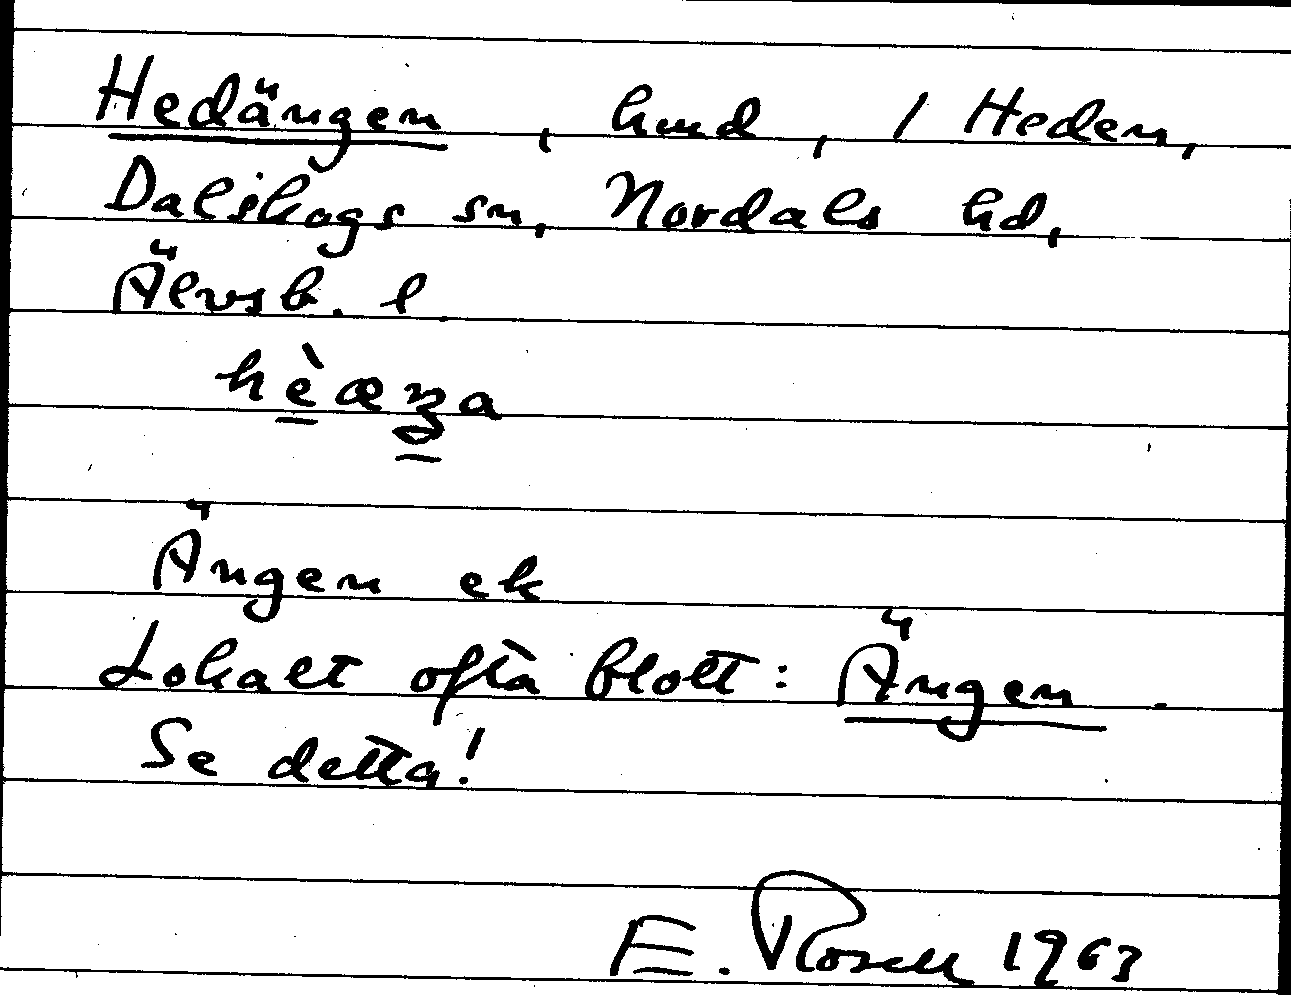 Hedängen, hmd, / Heden,
Dalskogs sn, Nordals hd,
Älvsb. l.
Ängen ek
Lokalt ofta blott: Ängen.
Se detta!
E. Rosell 1963